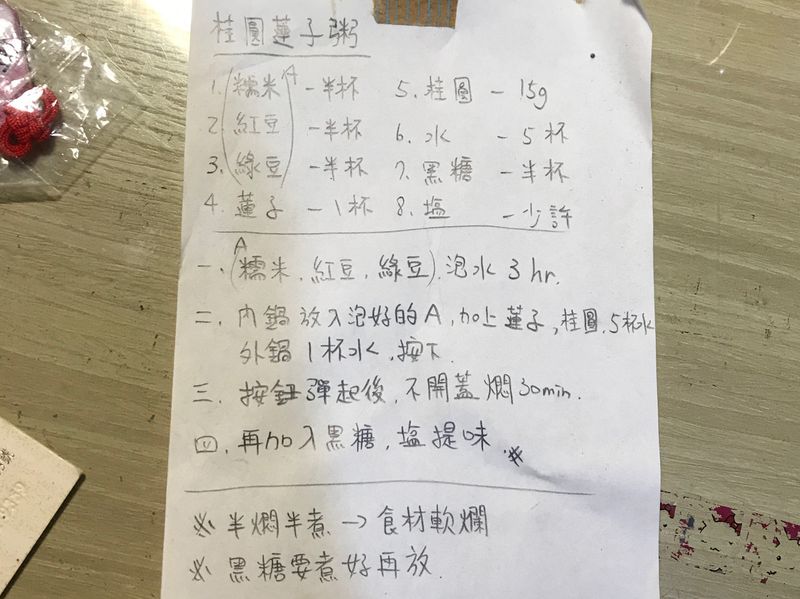 桂圓蓮子粥
1. (糯米 A －半杯 5. 桂圓 － 15g
2. 紅豆 －半杯 6. 水 － 5 杯
3. 綠豆) －半杯 7. 黑糖 －半杯
4. 蓮子 －1杯 8. 塩 －少許
A
一. (糯米. 紅豆. 綠豆). 泡水 3 hr.
二. 內鍋放入泡好的A, 加上蓮子, 桂圓, 5杯水
外鍋1杯水, 按下.
三. 按鈕彈起後, 不開蓋燜30min.
四. 再加入黑糖, 塩提味 ※
※ 半燜半煮 → 食材軟爛
※ 黑糖要煮好再放.